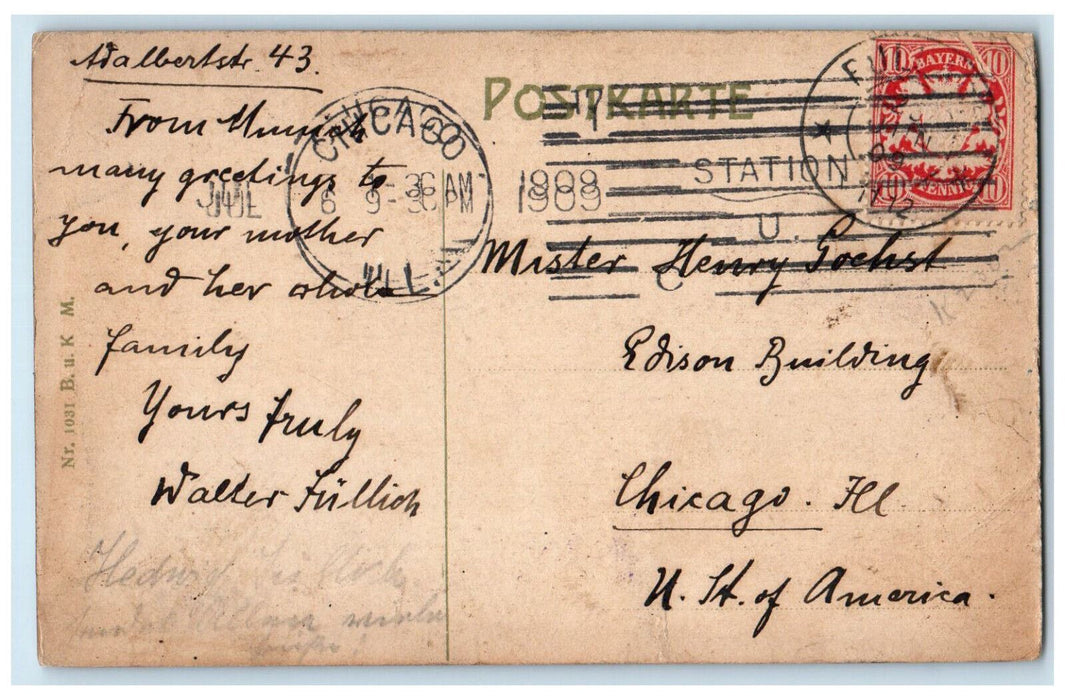 Adalbertstr. 43.
From Munich
many greetings to
you, your mother
and her whole
family
Yours truly
Walter Füllich
Hedwig
Nr. 1031 B. u. K M.
POSTKARTE
CHICAGO
ILL.
JUL 6 9-30 AM 1909
JUL 6 9-30 PM 1909
STATION
U.
10 BAYERN 10
PFENNIG
Mister Henry Goehst
Edison Building
Chicago. Ill.
U. St. of America.